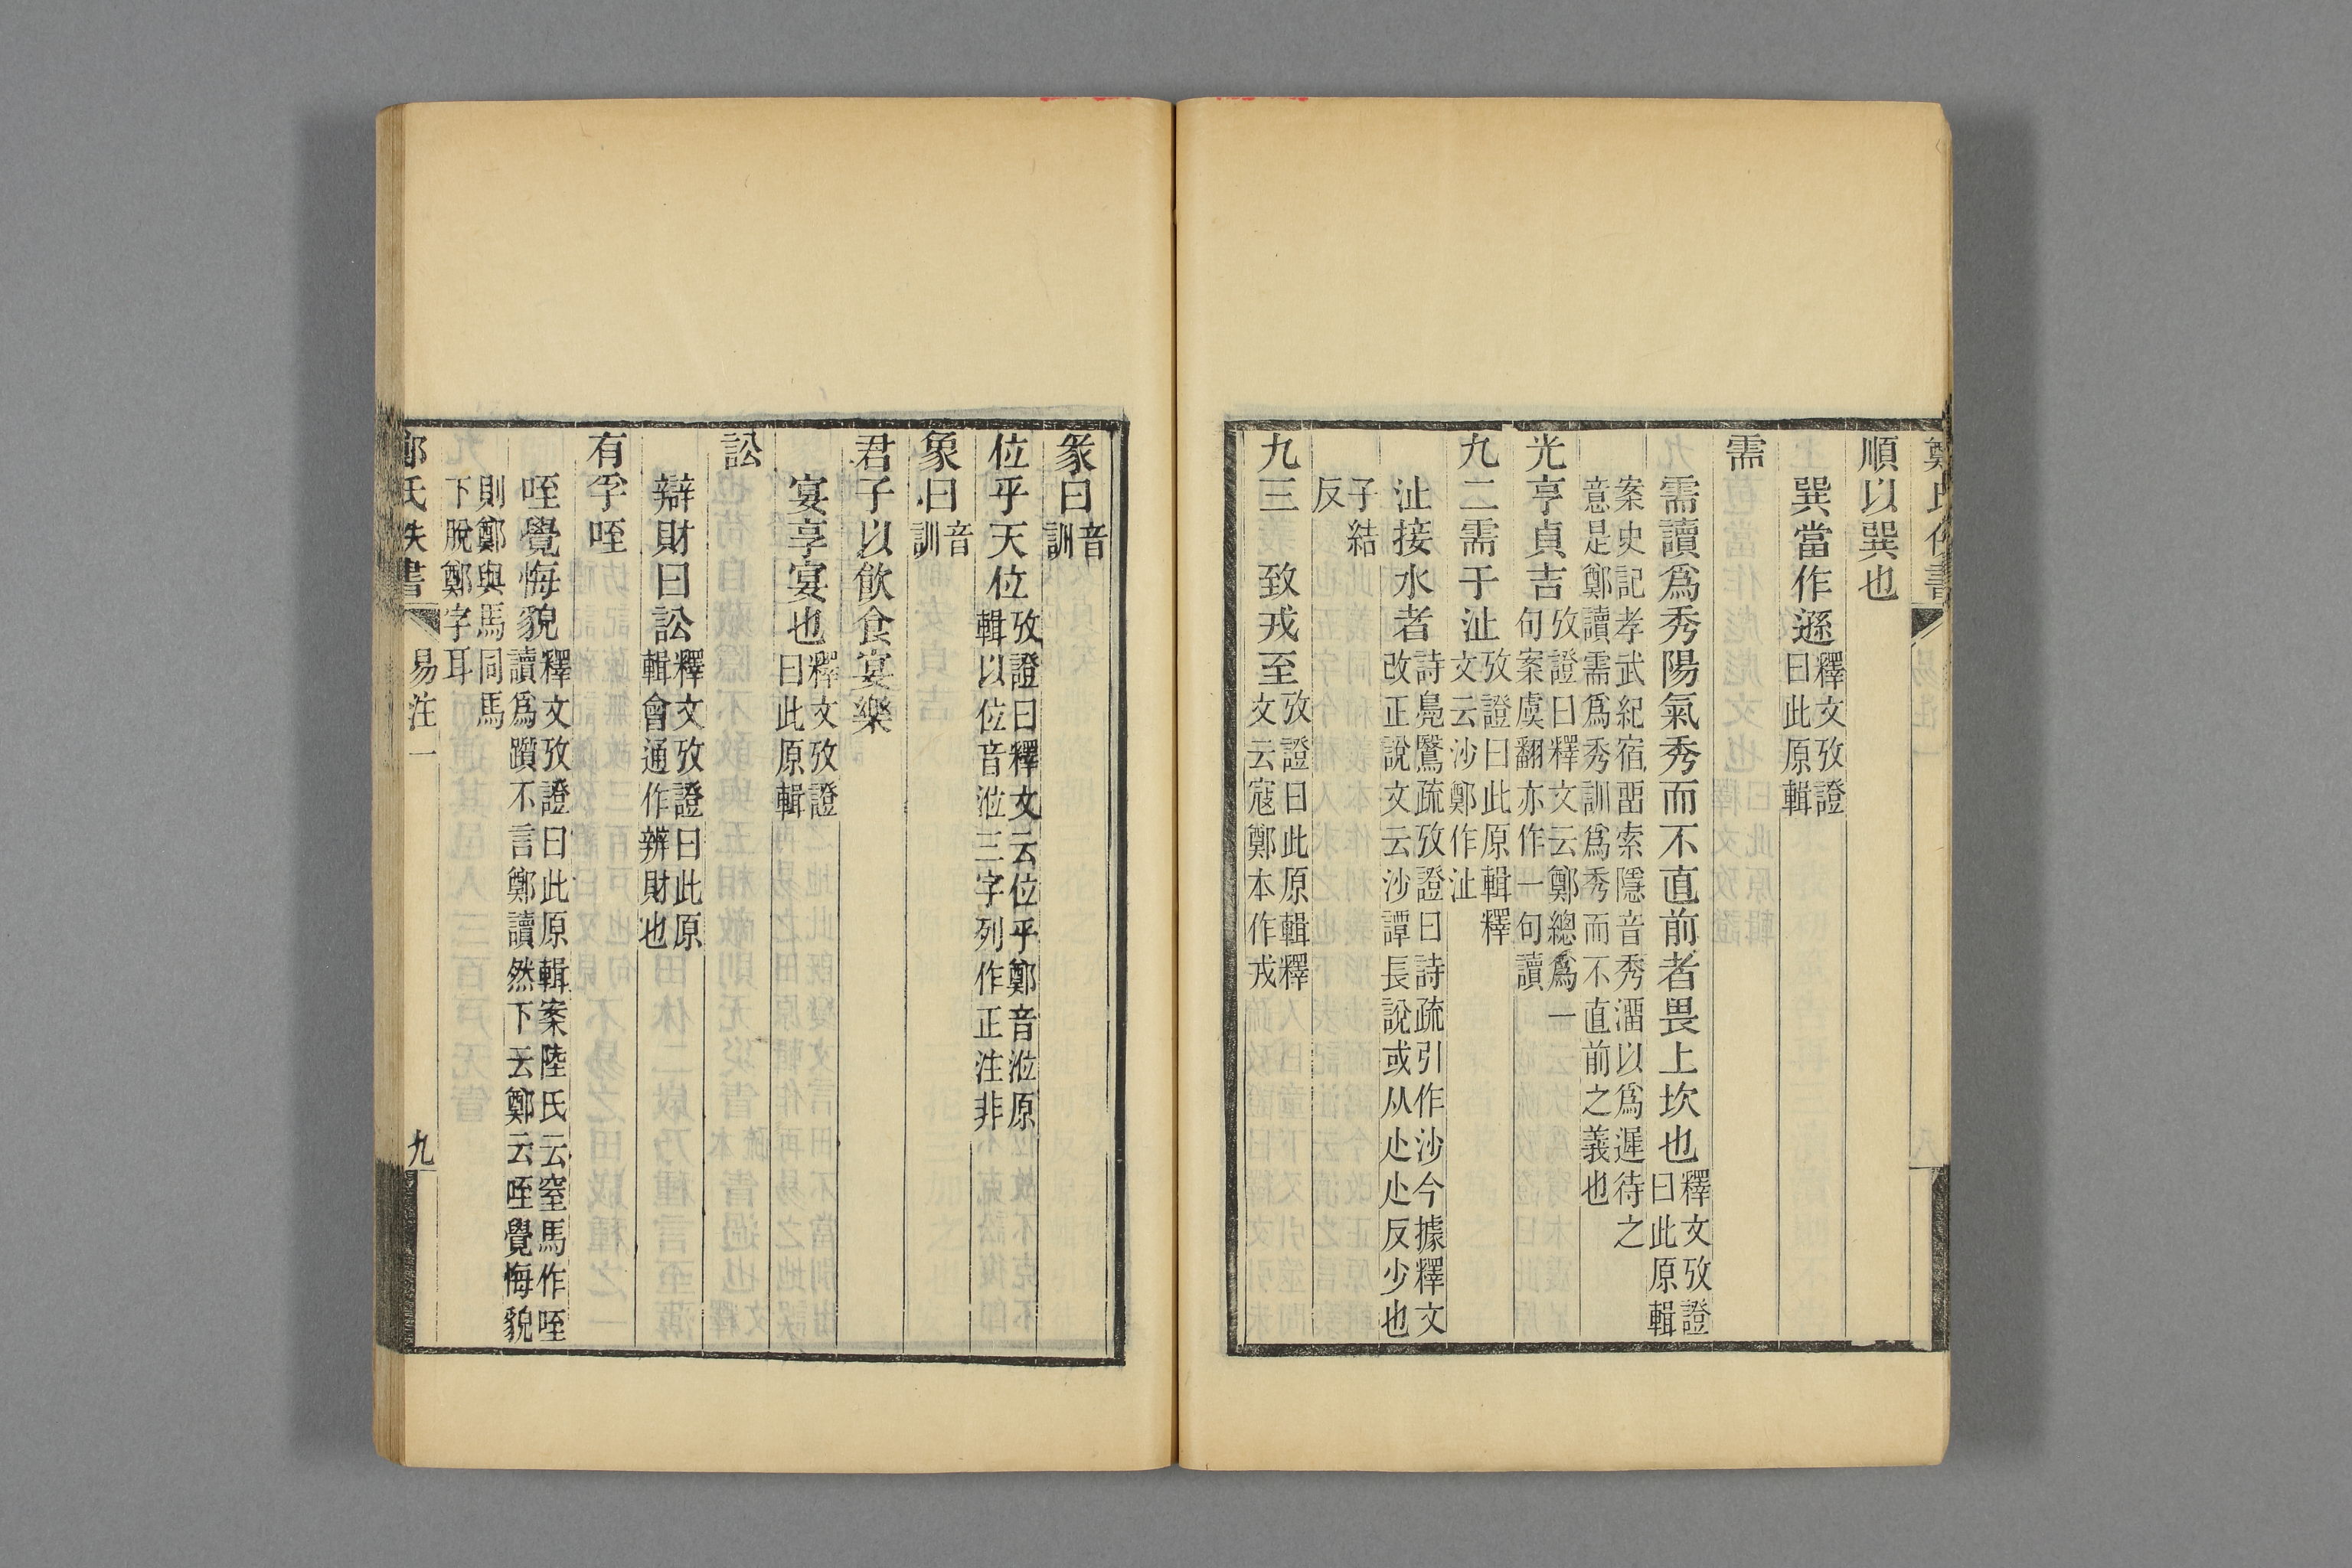 順以巽也
巽當作遜釋文攷證曰此原輯
需
需讀爲秀陽氣秀而不直前者畏上坎也釋文攷證曰此原輯
案史記孝武紀宿畱索隱音秀溜以爲遲待之意是鄭讀需爲秀訓爲秀而不直前之義也
光亨貞吉攷證曰釋文云鄭總爲一句案虞翻亦作一句讀
九二需于沚攷證曰此原輯釋文云沙鄭作沚
沚接水者詩鳧鷖疏攷證曰詩疏引作沙今據釋文改正說文云沙譚長說或从尐尐反少也
子結反
九三 致戎至攷證曰此原輯釋文云寇鄭本作戎
彖曰音訓
位乎天位攷證曰釋文云位乎鄭音涖原輯以位音涖三字列作正注非
象曰音訓
君子以飮食宴樂
宴享宴也釋文攷證曰此原輯
訟
辯財曰訟釋文攷證曰此原輯會通作辨財也
有孚咥
咥覺悔貌釋文攷證曰此原輯案陸氏云窒馬作咥讀爲躓不言鄭讀然下云鄭云咥覺悔貌
則鄭與馬同馬下脫鄭字耳
鄭氏佚書
易注一
九